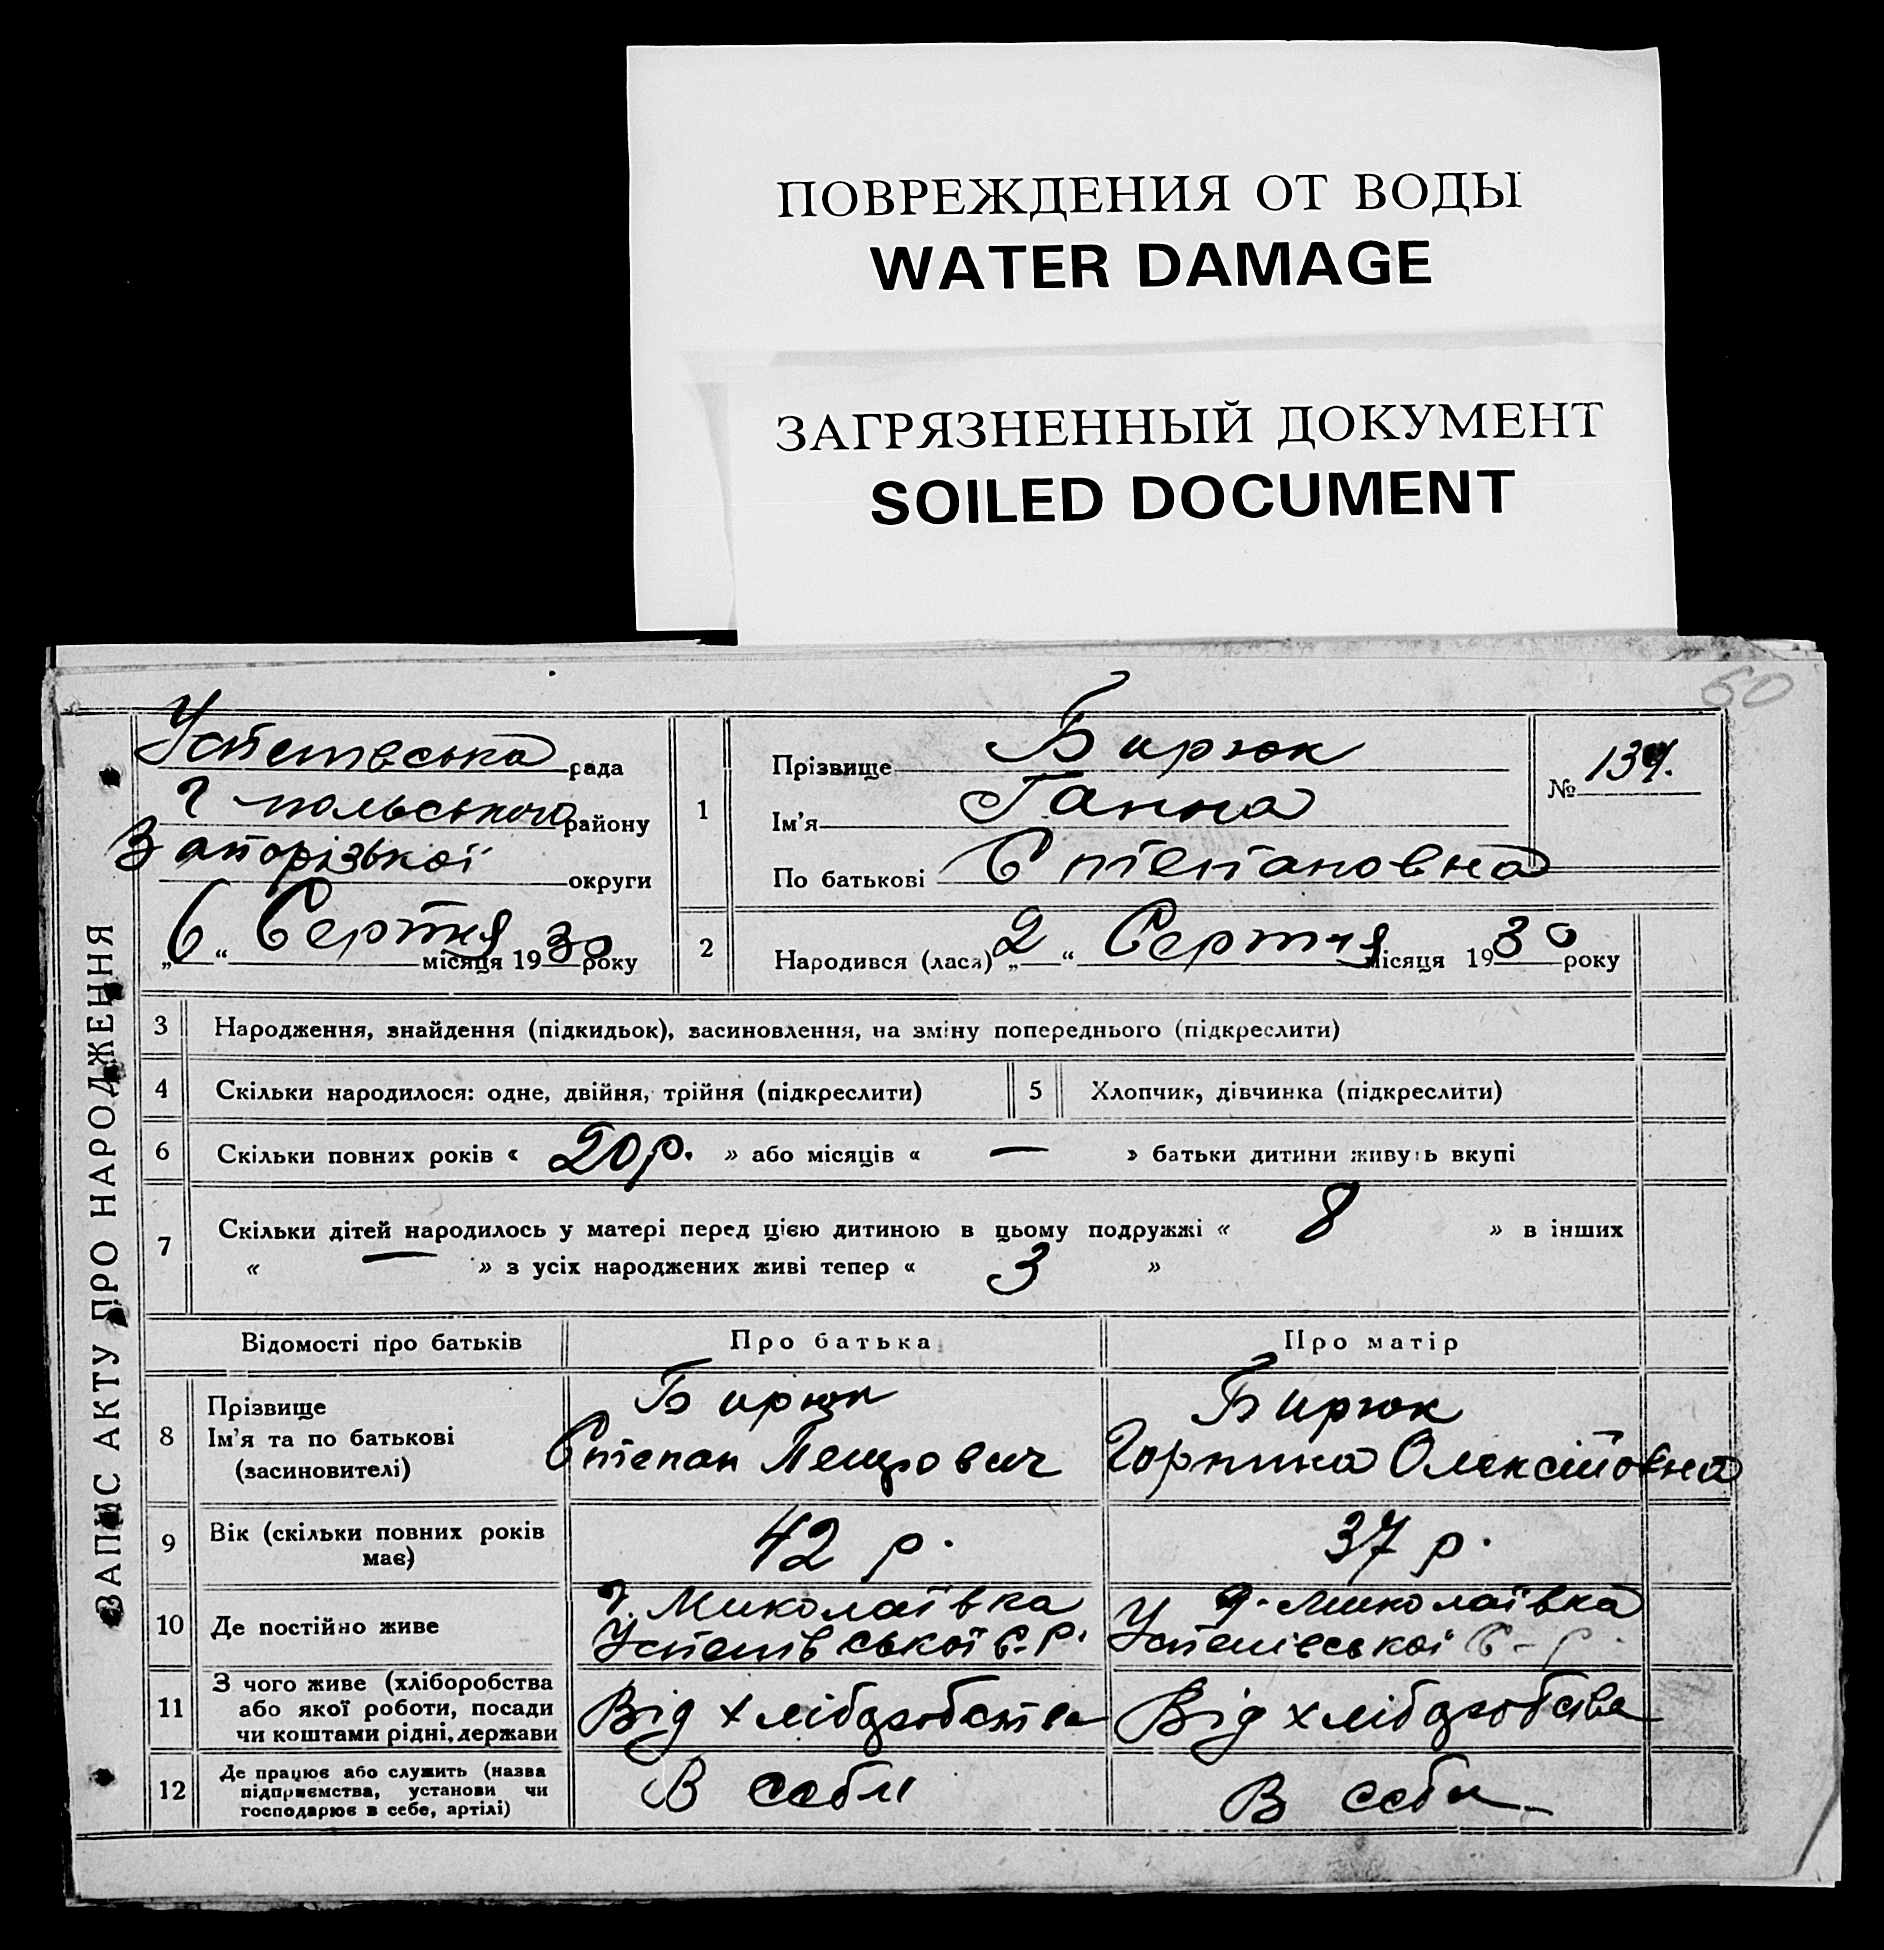 ПОВРЕЖДЕНИЯ ОТ ВОДЫ
WATER DAMAGE
ЗАГРЯЗНЕННЫЙ ДОКУМЕНТ
SOILED DOCUMENT
60
ЗАПИС АКТУ ПРО НАРОДЖЕННЯ
рада
Г польського району
Запорізької округи
„6“ Серпня місяця 1930 року
1 Прізвище Бирюк
Ім’я Ганна
По батькові Степановна
№ 134.
2 Народився (лася) „2“ Серпня місяця 1930 року
3 Народження, знайдення (підкидьок), засиновлення, на зміну попереднього (підкреслити)
4 Скільки народилося: одне, двійня, трійня (підкреслити) 5 Хлопчик, дівчинка (підкреслити)
6 Скільки повних років « 20 р. » або місяців « — » батьки дитини живуть вкупі
7 Скільки дітей народилось у матері перед цією дитиною в цьому подружжі « 8 » в інших
« — » з усіх народжених живі тепер « 3 »
Відомості про батьків Про батька Про матір
8 Прізвище Бирюк Бирюк
Ім’я та по батькові Степан Петрович Горпина Олексіївна
(засиновителі)
9 Вік (скільки повних років має) 42 р. 37 р.
10 Де постійно живе Миколаївка Миколаївка
Успенівської с-р. Успенівської с-р.
11 З чого живе (хліборобства
або якої роботи, посади Від хліборобства Від хліборобства
чи коштами рідні, держави
12 Де працює або служить (назва
підприємства, установи чи В себи В себи
господарює в себе, артілі)